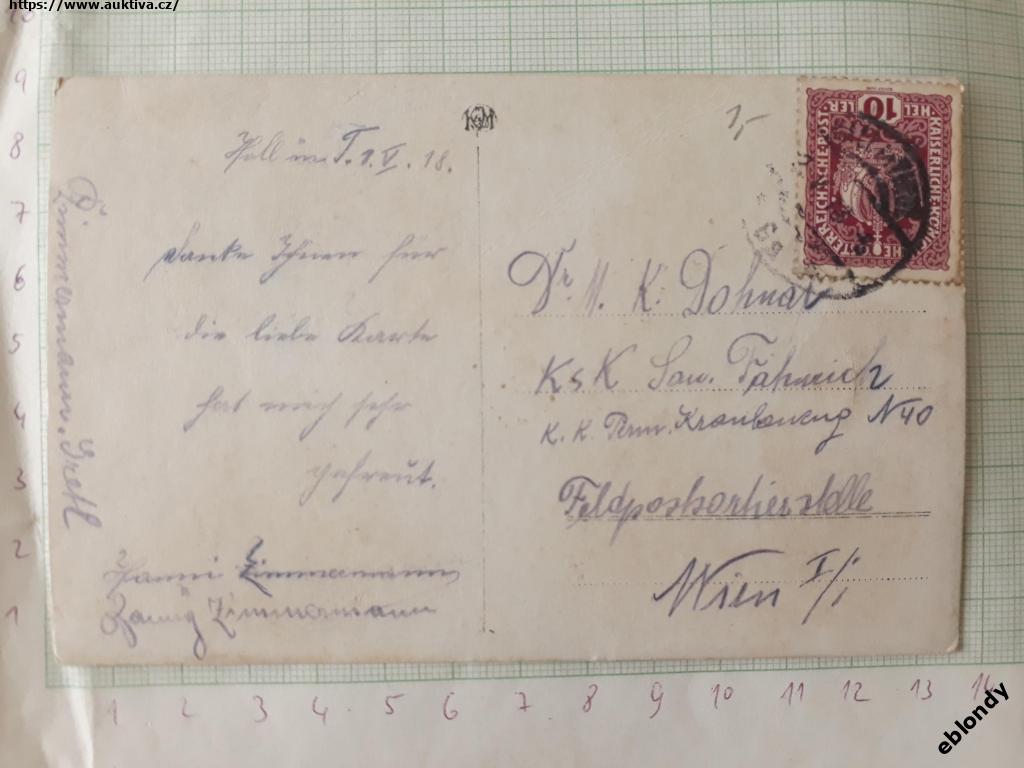 https://www.auktiva.cz/
Hall in T. 1. V. 18.
danke Ihnen für
die liebe Karte
hat mich sehr
gefreut.
Hanni Zimmermann
Zimmermann
Zimmermann Gretl
1,-
HEL- 10 LER
KAISERLICHE KÖNIGLICHE ÖSTERREICHISCHE POST
Dr. M. K. Dohnal
K & K San. Fähnrich
K. K. Krankenzug N 40
Feldpostsortierstelle
Wien I/1
9
8
7
6
5
4
3
2
1
1 2 3 4 5 6 7 8 9 10 11 12 13 14
eblondy